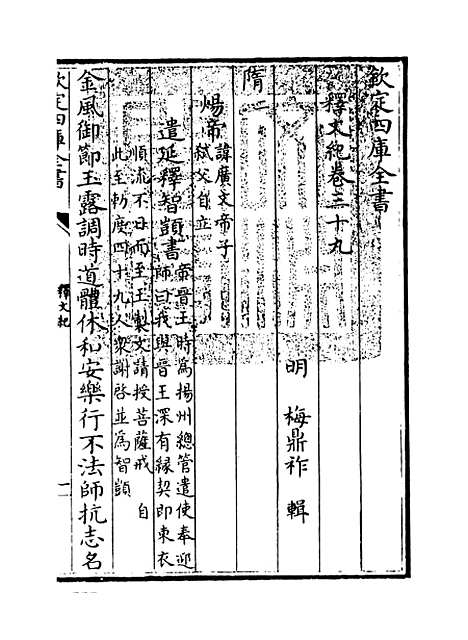 欽定四庫全書
釋文紀卷三十九
明 梅鼎祚 輯
隋
煬帝
諱廣文帝子
弑父自立
遣延釋智顗書
帝晉王時為揚州總管遣使奉迎
師曰我與晉王深有縁契即束衣
順流不日而至王製文請授菩薩戒 自
此至勑度四十九人衆謝啓並為智顗
金風御節玉露調時道體休和安樂行不法師抗志名
欽定四庫全書
釋文紀
一